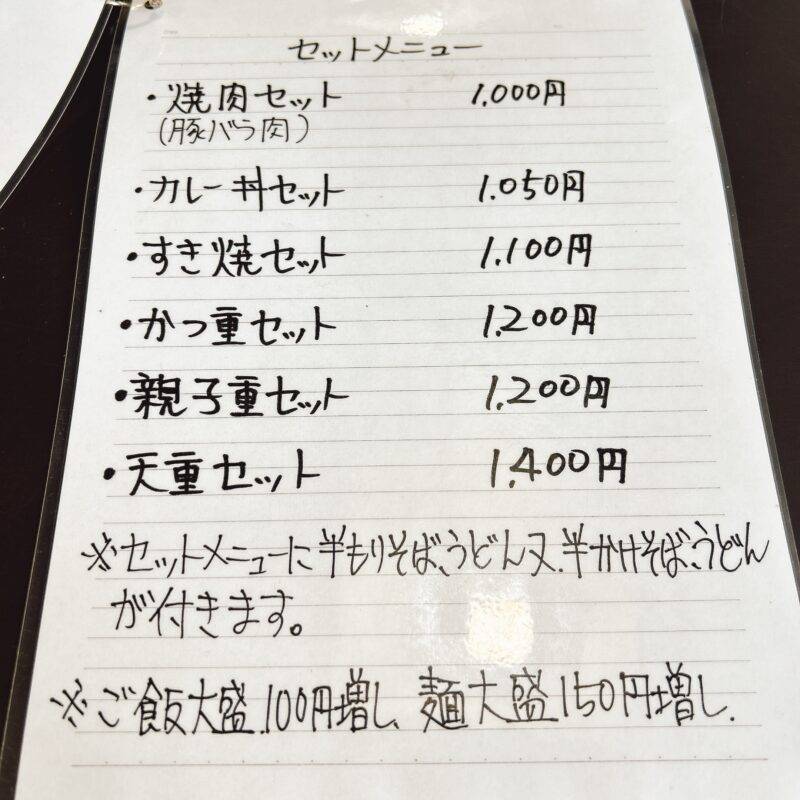 セットメニュー
・焼肉セット 1.000円
(豚バラ肉)
・カレー丼セット 1.050円
・すき焼セット 1.100円
・かつ重セット 1.200円
・親子重セット 1.200円
・天重セット 1.400円
※セットメニューに半もりそば、うどん又.半かけそば、うどん
が付きます。
※ご飯大盛.100円増し、麺大盛150円増し.